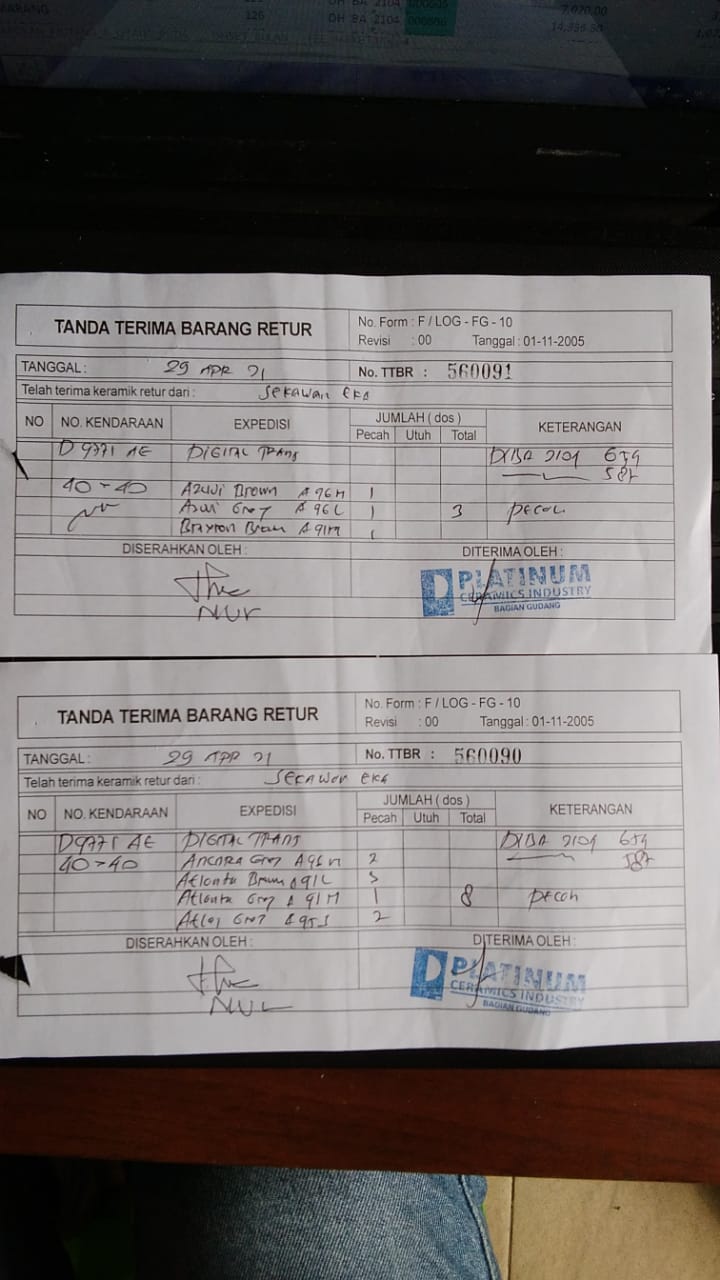 BARANG
126
DH BA 2104 000005
7,020.00
DH BA 2104 000006
14,996.50
TANDA TERIMA BARANG RETUR
No. Form : F / LOG - FG - 10
Revisi : 00 Tanggal : 01-11-2005
TANGGAL : 29 APR 21
No. TTBR : 560091
Telah terima keramik retur dari : Sekawan eka
NO NO. KENDARAAN EXPEDISI JUMLAH ( dos ) KETERANGAN
Pecah Utuh Total
D 9771 AE DIGITAL TRANS DIBA 2104 659
587
40-40 Azuvi Brown A 96M 1
Azuvi Grey A 96L 1 3 pecah
Braxton Brown A 91M 1
DISERAHKAN OLEH : DITERIMA OLEH :
PLATINUM
CERAMICS INDUSTRY
BAGIAN GUDANG
NUR
TANDA TERIMA BARANG RETUR
No. Form : F / LOG - FG - 10
Revisi : 00 Tanggal : 01-11-2005
TANGGAL : 29 APR 21
No. TTBR : 560090
Telah terima keramik retur dari : Sekawan eka
NO NO. KENDARAAN EXPEDISI JUMLAH ( dos ) KETERANGAN
Pecah Utuh Total
D 9771 AE DIGITAL TRANS DIBA 2104 659
40-40 Ancora Grey A 96M 2 587
Atlanta Brown A 91L 3
Atlanta Grey A 91M 1 8 pecah
Atlas Grey A 95J 2
DISERAHKAN OLEH : DITERIMA OLEH :
PLATINUM
CERAMICS INDUSTRY
BAGIAN GUDANG
NUR